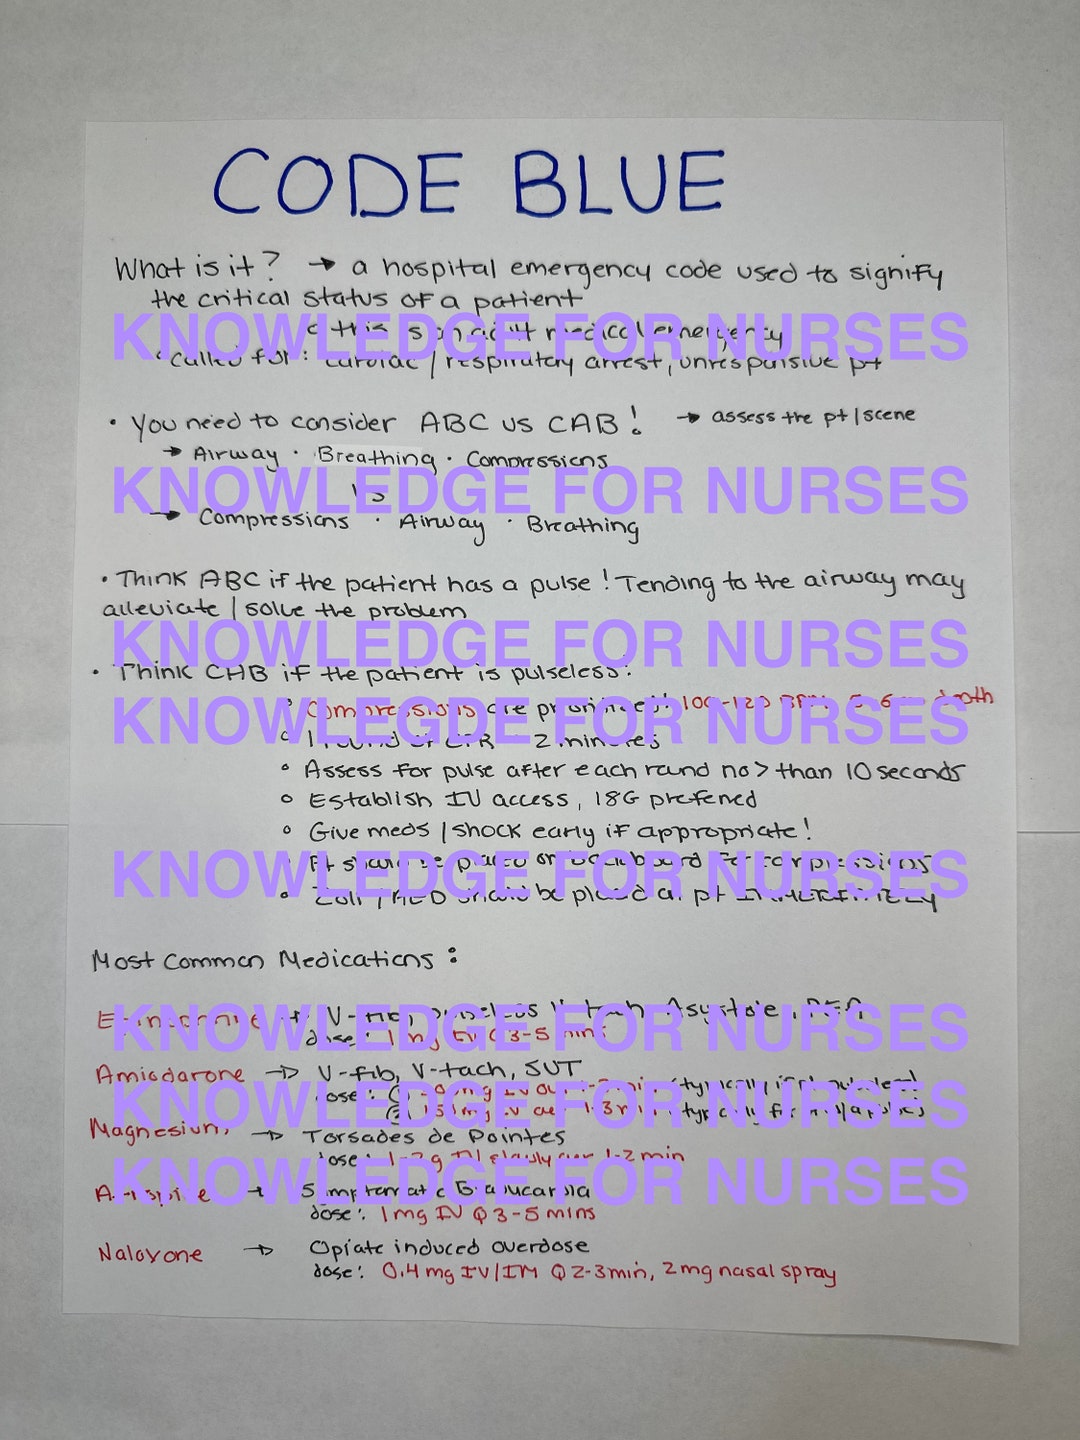 CODE BLUE
What is it? → a hospital emergency code used to signify
the critical status of a patient
this is an adult medical emergency
KNOWLEDGE FOR NURSES
Called for: cardiac / respiratory arrest, unresponsive pt
• You need to consider ABC vs CAB! → assess the pt/scene
→ Airway · Breathing · Compressions
KNOWLEDGE FOR NURSES
vs
→ Compressions · Airway · Breathing
• Think ABC if the patient has a pulse! Tending to the airway may
alleviate / solve the problem
KNOWLEDGE FOR NURSES
• Think CAB if the patient is pulseless:
KNOWLEGDE FOR NURSES
° Compressions are prioritized! 100-120 BPM, depth
° 1 round of CPR 2 minutes
° Assess for pulse after each round no > than 10 seconds
° Establish IV access, 18G preferred
° Give meds / shock early if appropriate!
KNOWLEDGE FOR NURSES
° Pt should be placed on backboard for compressions
° Zoll / AED should be placed on pt IMMEDIATELY
Most Common Medications:
KNOWLEDGE FOR NURSES
Epinephrine → V-fib, pulseless V-tach, Asystole, PEA
dose: 1mg IV Q3-5 mins
Amiodarone → V-fib, V-tach, SVT
KNOWLEDGE FOR NURSES
dose: ① IV (typically if pt pulseless)
② 150mg IV (typically for
Magnesium → Torsades de Pointes
dose: 1-2g IV slowly over 1-2 min
KNOWLEDGE FOR NURSES
Atropine → Symptomatic Bradycardia
dose: 1mg IV Q3-5 mins
Naloxone → Opiate induced overdose
dose: 0.4mg IV/IM Q2-3min, 2mg nasal spray